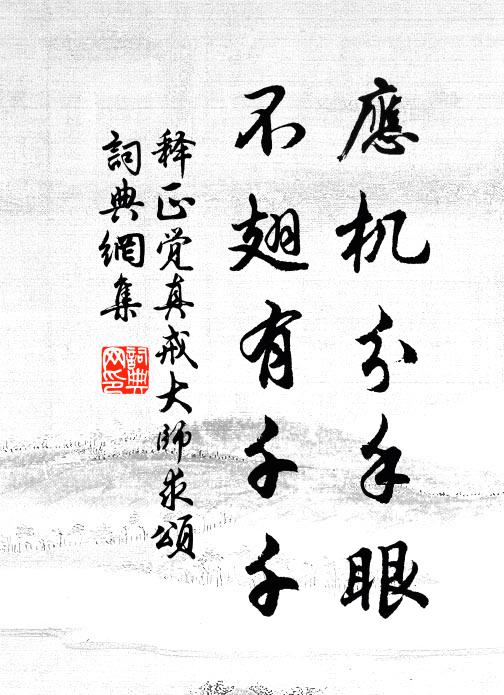 應机分手眼
不翅有千千
释正觉真戒大师求頌
詞典網集
詞典
网印